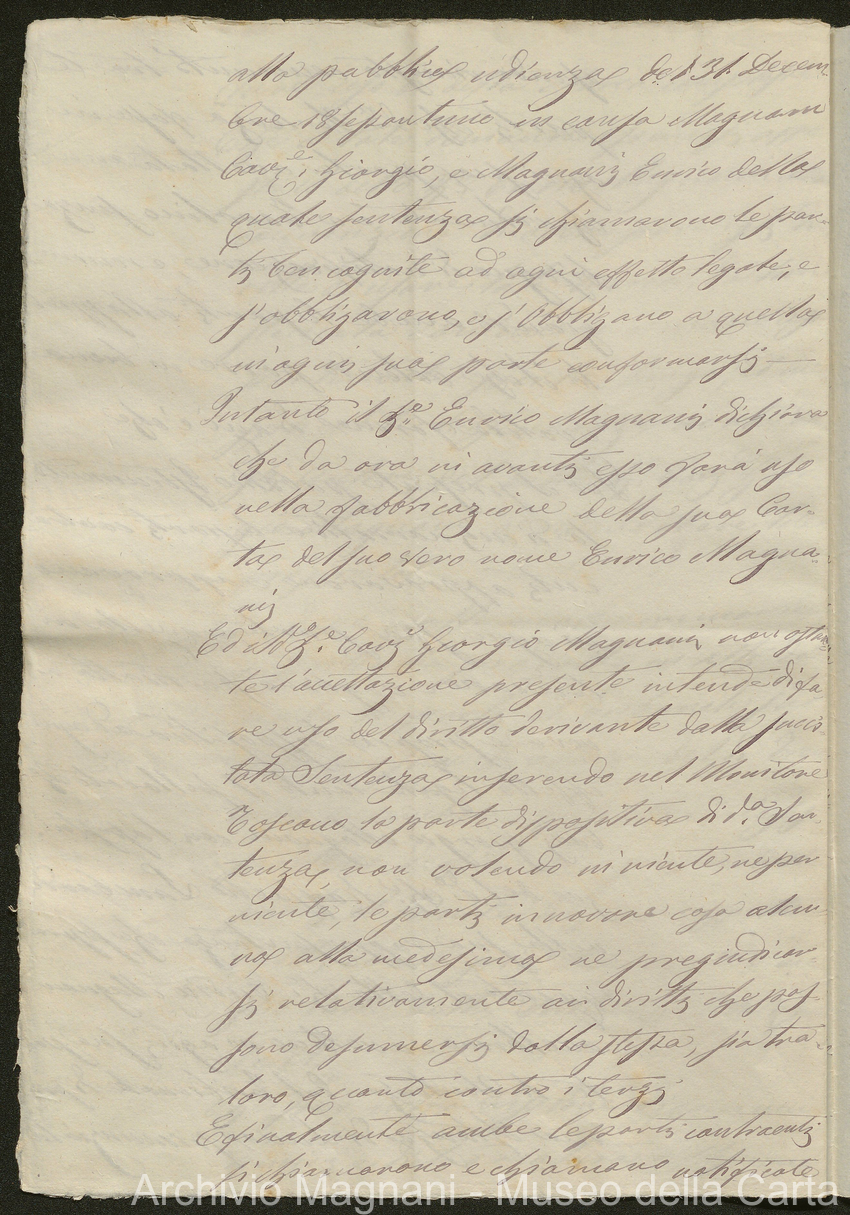 alla pubblica udienza de 31. Decem-
bre 18
in causa Magnani
Cav.e Giorgio, e Magnani Enrico della
quale sentenza si chiamarono le par-
ti ben cognite ad ogni effetto legale, e
s'obbligarono, e s'obbligano a quella
in ogni sua parte conformarsi —
Intanto il Enrico Magnani dichiara
che da ora in avanti esso farà uso
nella fabbricazione della sua Car-
ta del suo vero nome Enrico Magna-
ni
Ed il Cav.e Giorgio Magnani non ostan-
te l'accettazione presente intende di fa-
re uso del diritto derivante dalla succi-
tata Sentenza inserendo nel Monitore
Toscano la parte dispositiva di d.a Sen-
tenza, non volendo in niente, ne per
niente, le parti innovare cosa alcu-
na alla medesima ne pregiudicar-
si relativamente ai diritti che pos-
sono desumersi dalla stessa, sia tra
loro, quanto contro i terzi
E finalmente ambe le parti contraenti
si chiamarono e chiamano notificate
Archivio Magnani - Museo della Carta